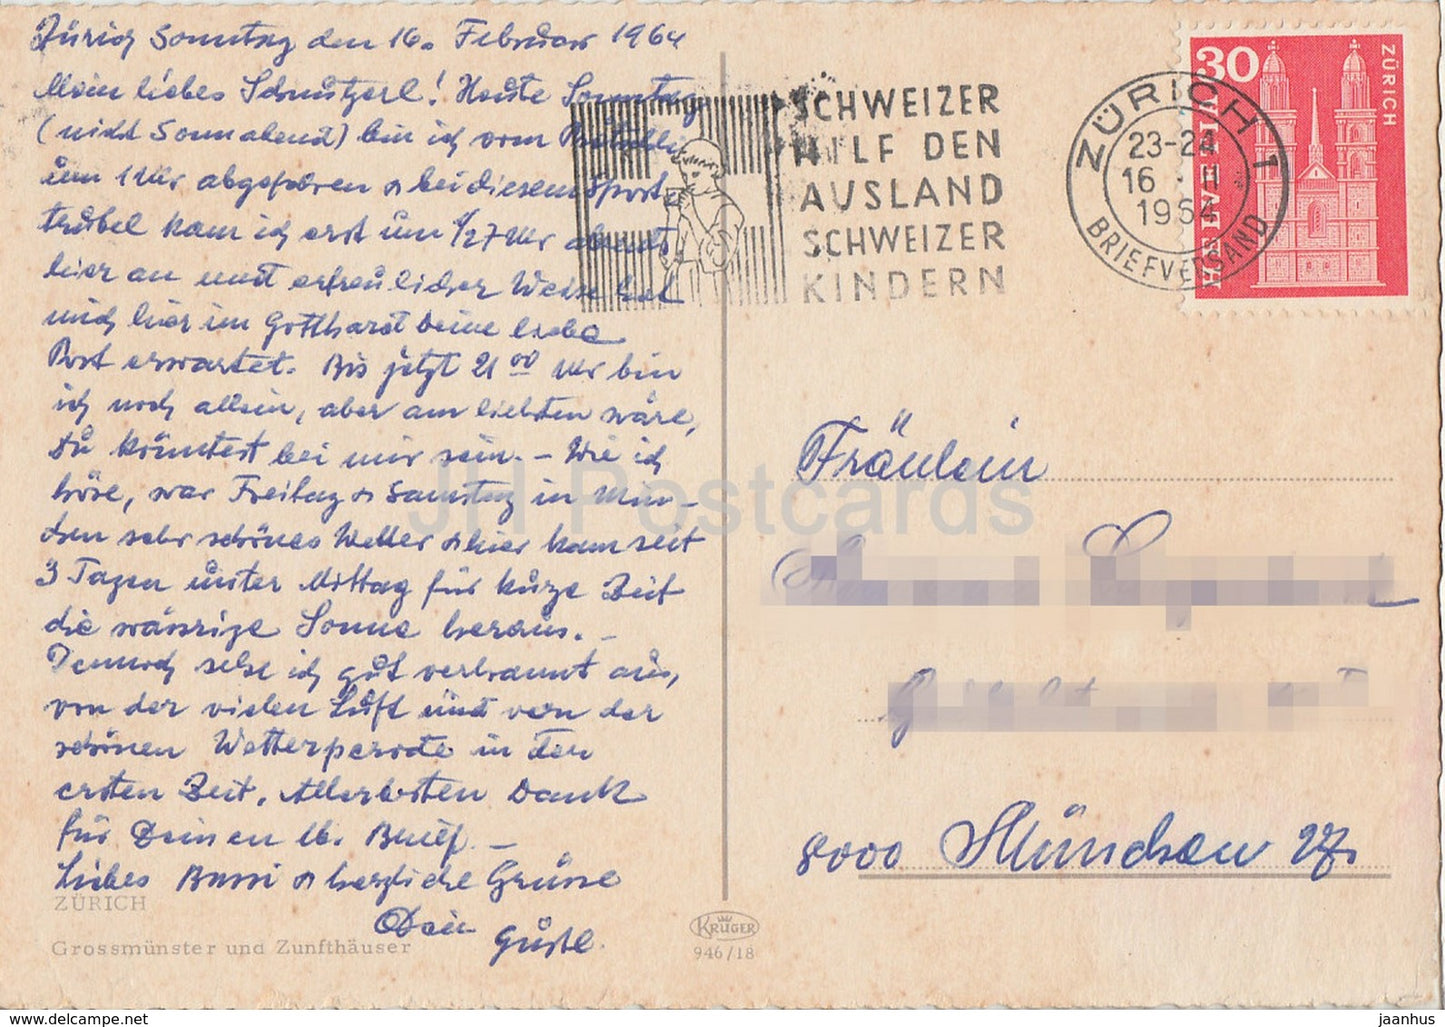 Zürich Sonntag den 16. Februar 1964
Mein liebes Schnutzerl! Heute Sonntag
(nicht Sonnabend) bin ich vom
um 1 Uhr abgefahren & bei diesem Sport
trubel kam ich erst um 1/2 7 Uhr abends
hier an und erfreulicher Weise hat
mich hier im Gotthard Deine liebe
Post erwartet. Bis jetzt 21 00 Uhr bin
ich noch allein, aber am liebsten wäre,
Du könntest bei mir sein. – Wie ich
höre, war Freitag & Samstag in Mün-
chen sehr schönes Wetter & hier kam seit
3 Tagen unter Mittag für kurze Zeit
die wässrige Sonne heraus. –
Dennoch sehe ich gut verbrannt aus,
von der vielen Luft und von der
schönen Wetterperiode in den
ersten Zeit. Allerbesten Dank
für Deinen lb. Brief. –
Liebes Bussi & herzliche Grüsse
Dein Gustl.
ZÜRICH
Grossmünster und Zunfthäuser
KRÜGER
946/18
SCHWEIZER
HILF DEN
AUSLAND
SCHWEIZER
KINDERN
ZÜRICH 1
23-24
16 · II
1964
BRIEFVERSAND
30
ZÜRICH
HELVETIA
Fräulein
8000 München 27.
JH Postcards
jaanhus — https://jhpostcards.com